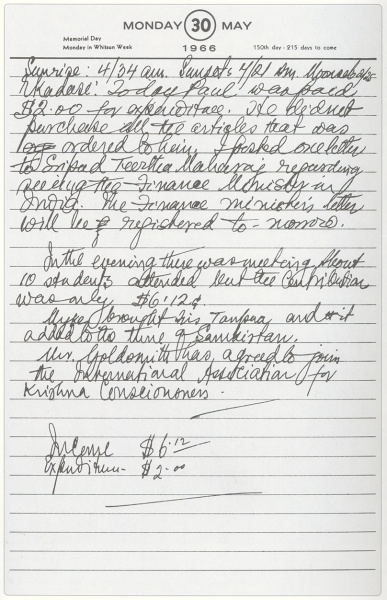 MONDAY 30 MAY
Memorial Day
Monday in Whitsun Week
1966
150th day - 215 days to come
Sunrise: 4/34 am. Sunset: 4/21 pm. Moonsets
'Ekadasi' Today Paul was paid
$2.00 for expenditure. He did not
purchase all the articles that was
ordered to him. I posted one letter
to Sripad Teertha Maharaj regarding
seeing the Finance Minister in
India. The Finance minister's letter
will be registered to-morrow.
In the evening there was meeting About
10 students attended but the contribution
was only $6.12¢.
brought his Tanpura and it
added to the tune of Samkirtan.
Mr. Goldsmith has agreed to join
the International Association for
Krishna Consciousness.
Income $6.12
Expenditure $2.00